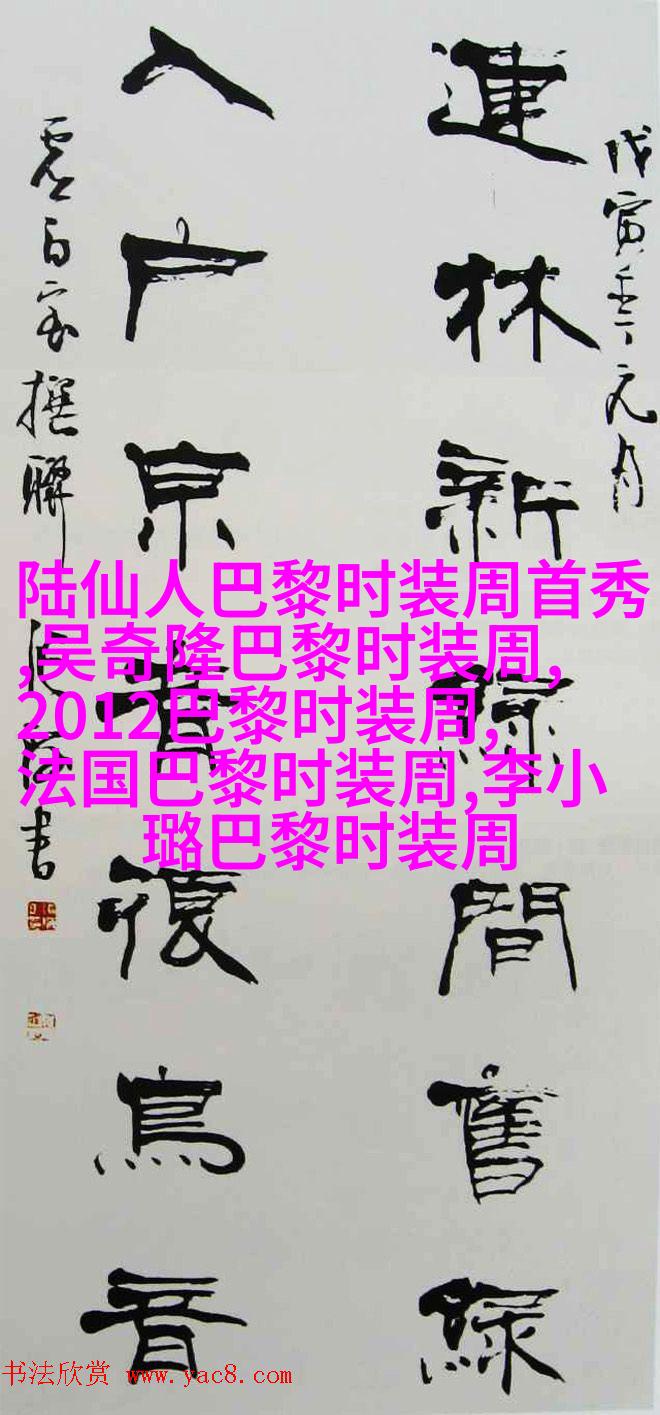 戊寅年元月
連林新綠間舊綠
入戶京音復鳥音
撰聯
書
陆仙人巴黎时装周首秀
,吴奇隆巴黎时装周,
2012巴黎时装周,
法国巴黎时装周,李小
璐巴黎时装周
书法欣赏 www.yac8.com